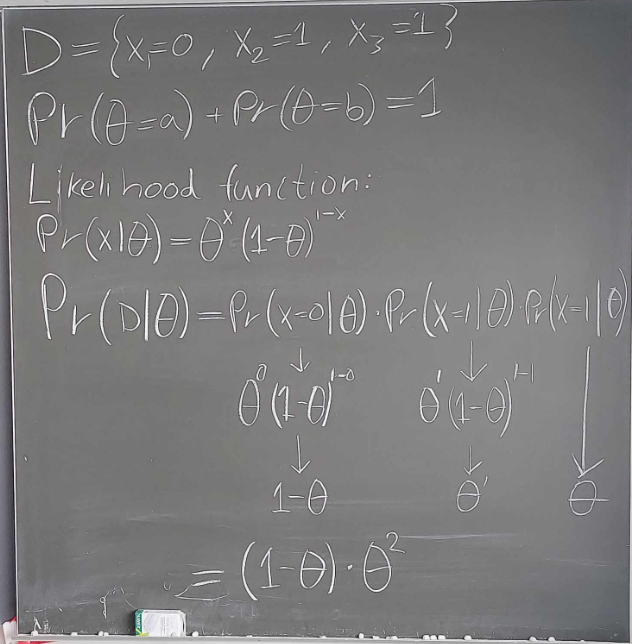 D = {x₁=0, x₂=1, x₃=1}
Pr(θ=a) + Pr(θ=b) = 1
Likelihood function:
Pr(x|θ) = θˣ(1-θ)¹⁻ˣ
Pr(D|θ) = Pr(x=0|θ) · Pr(x=1|θ) · Pr(x=1|θ)
↓ ↓ ↓
θ⁰(1-θ)¹⁻⁰ θ¹(1-θ)¹⁻¹
↓ ↓
1-θ θ¹ θ
= (1-θ) · θ²